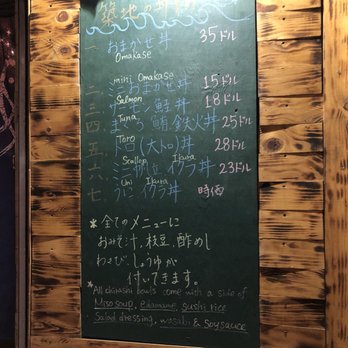 築地の
一 おまかせ丼 35ドル
Omakase
mini Omakase
二 ミニおまかせ丼 15ドル
Salmon
三 サーモン鮭丼 18ドル
Tuna
四 まぐろ鮪、鉄火丼 25ドル
Toro
五 トロ(大トロ)丼 28ドル
Scallop Ikura
六 ミニ イクラ丼 23ドル
Uni Ikura
七 うに イクラ丼 時価
*全てのメニューに
おみそ汁、枝豆、酢めし
わさび、しょうゆが
付いてきます。
*All chirashi bowls come with a side of
Miso soup, edamame, sushi rice
Salad dressing, wasabi & Soy sauce